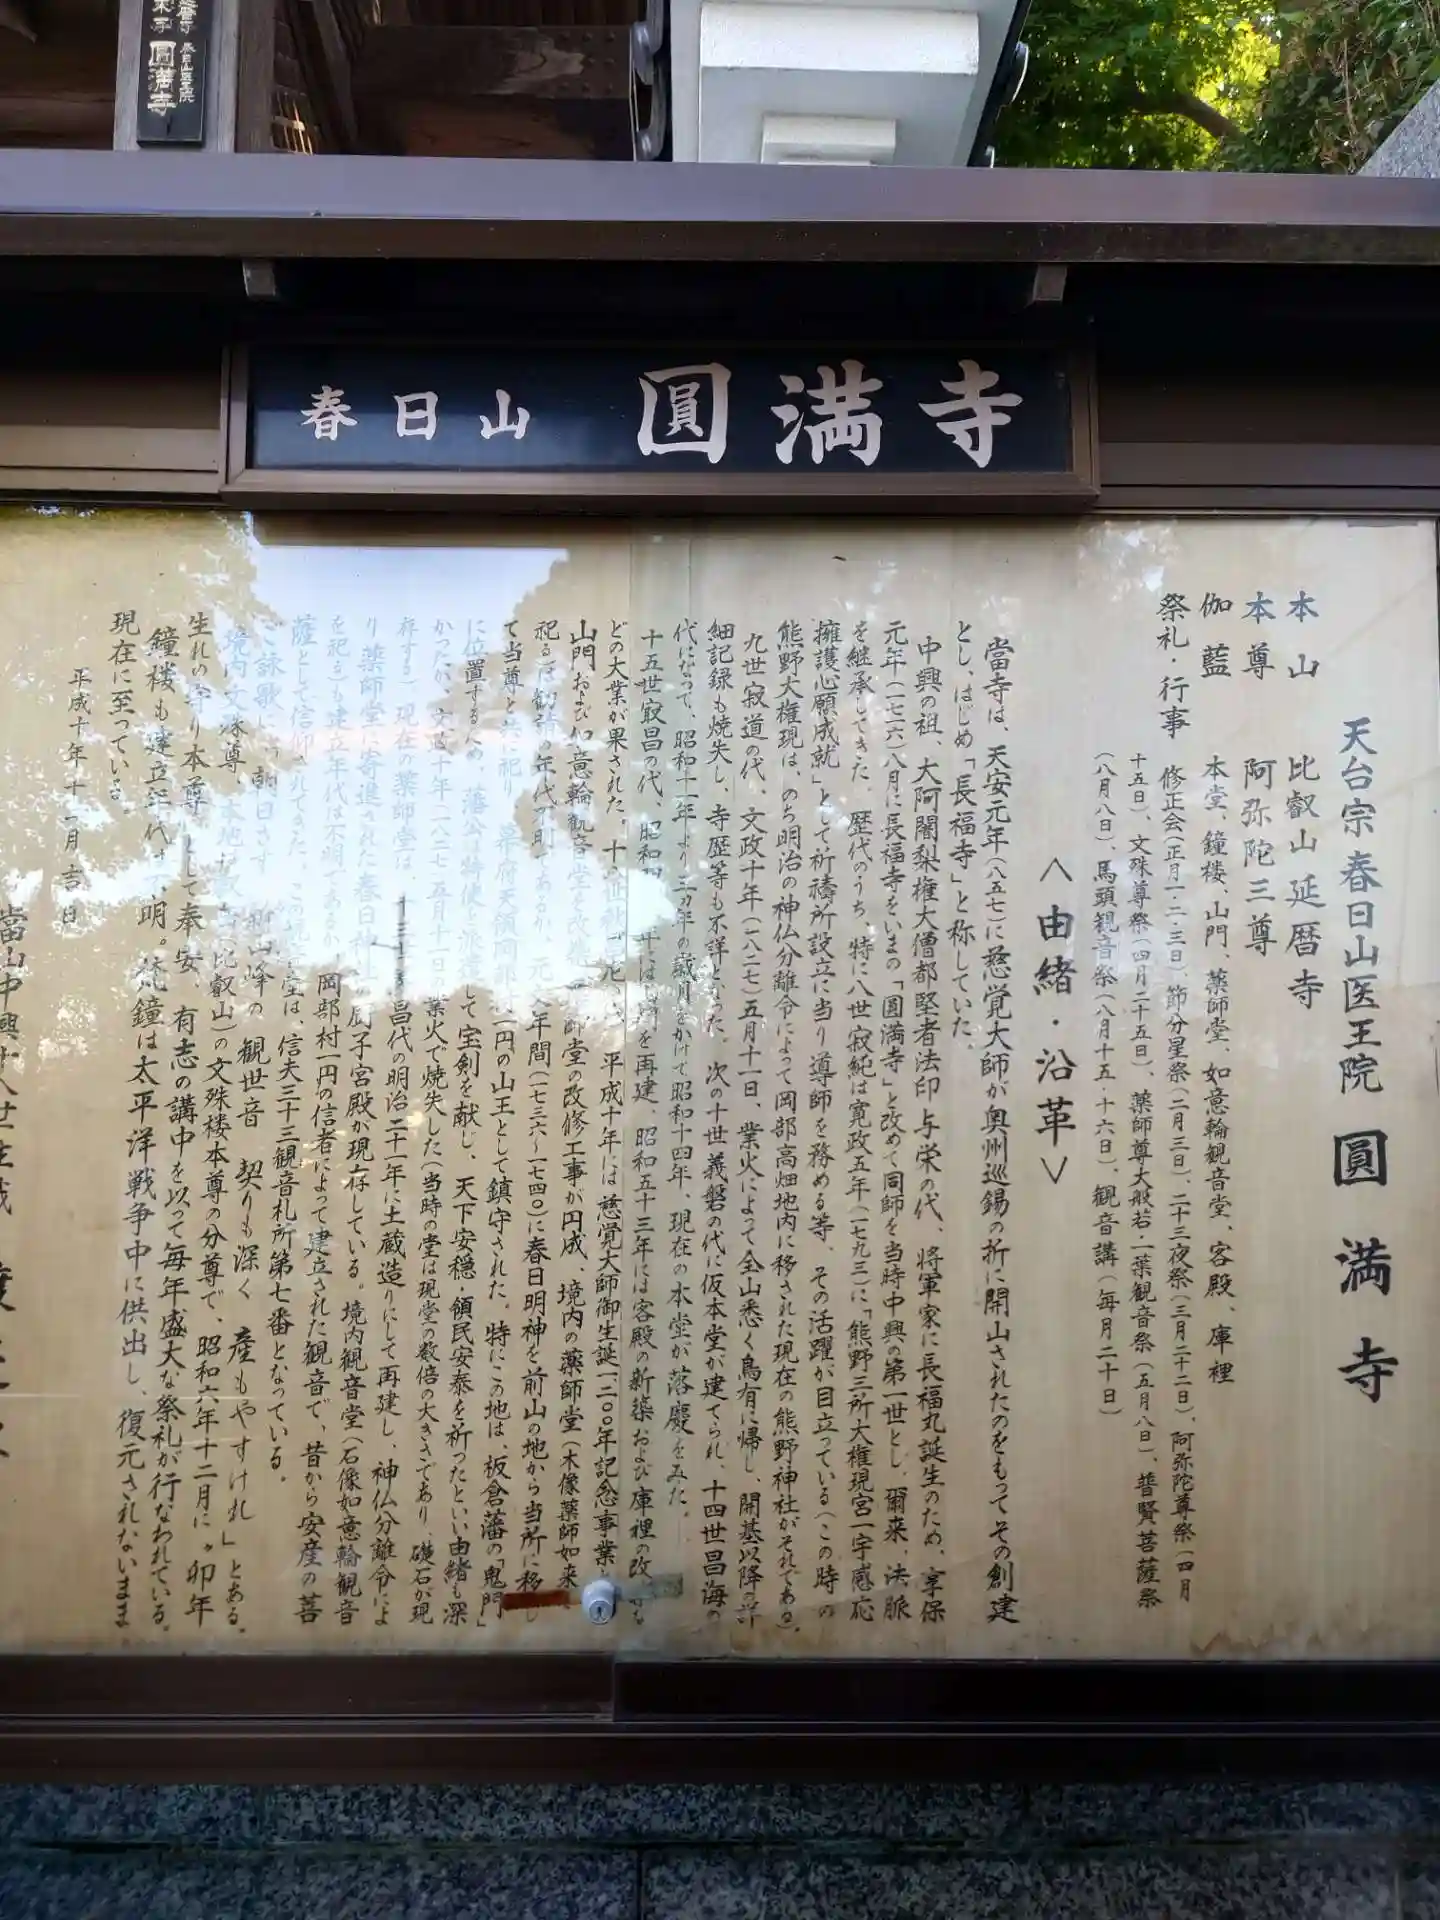 圓満寺
春日山医王院
春日山 圓満寺
天台宗 春日山医王院 圓満寺
本山 比叡山延暦寺
本尊 阿弥陀三尊
伽藍 本堂、鐘楼、山門、薬師堂、如意輪観音堂、客殿、庫裡
祭礼・行事 修正会(正月一・二・三日)、節分星祭(二月三日)、二十三夜祭(三月二十二日)、阿弥陀尊祭(四月
十五日)、文殊尊祭(四月二十五日)、薬師尊大般若・一葉観音祭(五月八日)、普賢菩薩祭
(八月八日)、馬頭観音祭(八月十五・十六日)、観音講(毎月二十日)
<由緒・沿革>
當寺は、天安元年(八五七)に慈覚大師が奥州巡錫の折に開山されたのをもってその創建
とし、はじめ「長福寺」と称していた。
中興の祖、大阿闍梨権大僧都堅者法印与栄の代、将軍家に長福丸誕生のため、享保
元年(一七一六)八月に長福寺をいまの「圓満寺」と改めて同師を当時中興の第一世とし、爾来、法脈
を継承してきた。歴代のうち、特に八世寂純は寛政五年(一七九三)に「熊野三所大権現宮一宇感応
擁護心願成就」として祈禱所設立に当り導師を務める等、その活躍が目立っている(この時の
熊野大権現は、のち明治の神仏分離令によって岡部高畑地内に移された現在の熊野神社がそれである)。
九世寂道の代、文政十年(一八二七)五月十一日、業火によって全山悉く烏有に帰し、開基以降の詳
細記録も焼失し、寺歴等も不詳となった。次の十世義磐の代に仮本堂が建てられ、十四世昌海の
代になって、昭和十一年より三カ年の歳月をかけて昭和十四年、現在の本堂が落慶をみた。
十五世寂昌の代、昭和 年には を再建、昭和五十三年には客殿の新築および庫裡の改
どの大業が果された。十 世 平成十年には慈覚大師御生誕一二〇〇年記念事業
山門、および如意輪観音堂を改 師堂の改修工事が円成、境内の薬師堂(木像薬師如来
祀る)は勧請の年代不明であるが、元 年間(一七三六〜一七四〇)に春日明神を前山の地から当所に移し
て当尊と共に祀り 幕府天領岡部 一円の山王として鎮守された。特にこの地は、板倉藩の「鬼門」
に位置するため、藩公は特使を派遣して宝剣を献じ、天下安穏・領民安泰を祈ったといい由緒も深
かったが、文政十年(一八二七)五 日の業火で焼失した(当時の堂は現堂の数倍の大きさであり、礎石が現
存する)。現在の薬師堂は 昌代の明治二十一年に土蔵造りにして再建し、神仏分離令によ
り薬師堂に寄進された春日神社の厨子宮殿が現存している。境内観音堂(石像如意輪観音
を祀る)も建立年代は不明であるが、岡部村一円の信者によって建立された観音で、昔から安産の菩
薩として信仰されて この観音堂は、信夫三十三観音札所第七番となっている。
ご詠歌に「朝日さす 峰の 観世音 契りも深く 産もやすけれ」とある。
境内文殊尊、 (比叡山)の文殊楼本尊の分尊で、昭和六年十二月に〝卯年
生れの守り本尊〟として奉安、有志の講中を以って毎年盛大な祭礼が行なわれている。
鐘楼も建立年代は不明。梵鐘は太平洋戦争中に供出し、復元されないまま
現在に至っている。
平成十年十一月吉日
當山中興十八世